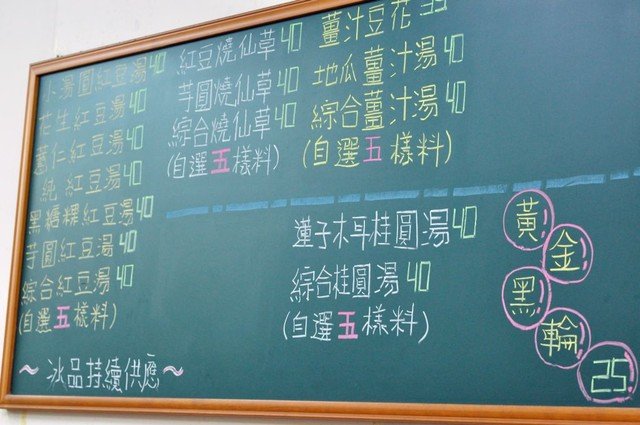 小湯圓紅豆湯40
花生紅豆湯40
薏仁紅豆湯40
純紅豆湯40
黑糖粿紅豆湯40
芋圓紅豆湯40
綜合紅豆湯40
(自選五樣料)
~冰品持續供應~
紅豆燒仙草40
芋圓燒仙草40
綜合燒仙草40
(自選五樣料)
薑汁豆花35
地瓜薑汁湯40
綜合薑汁湯40
(自選五樣料)
蓮子木耳桂圓湯40
綜合桂圓湯40
(自選五樣料)
黃金黑輪25